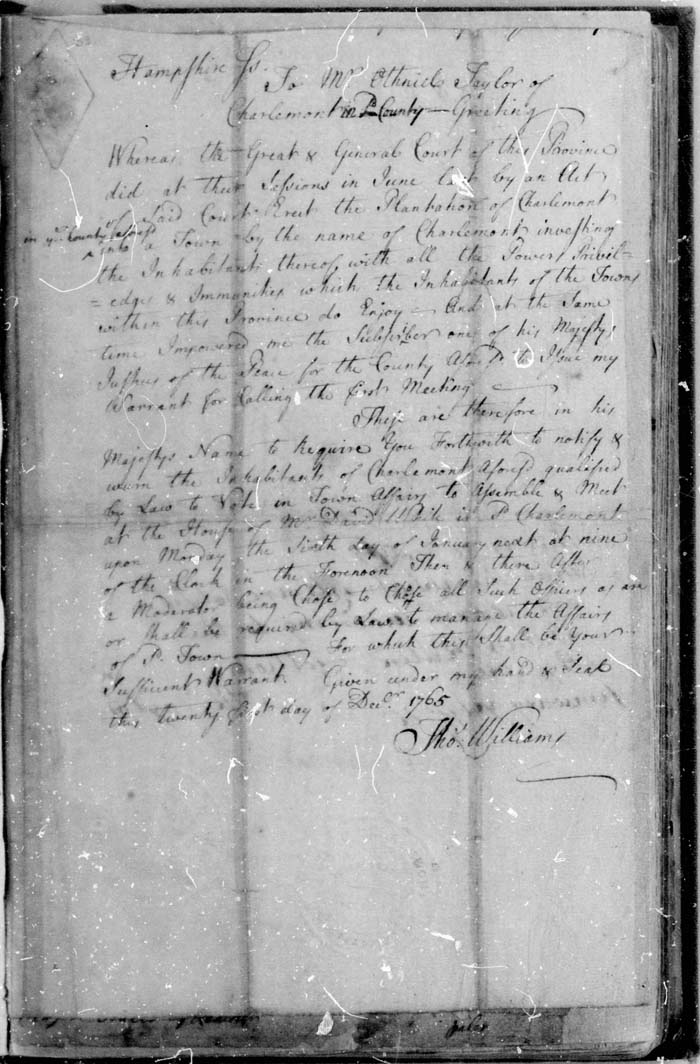 Hampshire Ss.
To Mr Othniel Taylor of
Charlemont in sd County — Greeting
Whereas the Great & General Court of this Province
did at their Sessions in June last by an Act
of Said Court Erect the Plantation of Charlemont
in ye County aforesd
into a Town by the name of Charlemont investing
the Inhabitants thereof with all the Powers Privil=
=edges & Immunities which the Inhabitants of the Towns
within this Province do Enjoy — And at the Same
time Impowered me the Subscriber one of his Majestys
Justices of the Peace for the County Aforesd to Issue my
Warrant for Calling the first Meeting —
These are therefore in his
Majestys Name to Require You Forthwith to notify &
warn the Inhabitants of Charlemont Aforesd qualified
by Law to Vote in Town Affairs to Assemble & Meet
at the House of Mr David White in sd Charlemont
upon Monday the Sixth day of January next at nine
of the Clock in the Forenoon Then & there After
a Moderator being Chose to Chose all Such Officers as are
or Shall be required by Law to manage the Affairs
of sd Town — For which this Shall be Your
Sufficient Warrant. Given under my hand & Seal
this twenty first day of Decr 1765
Thos Williams